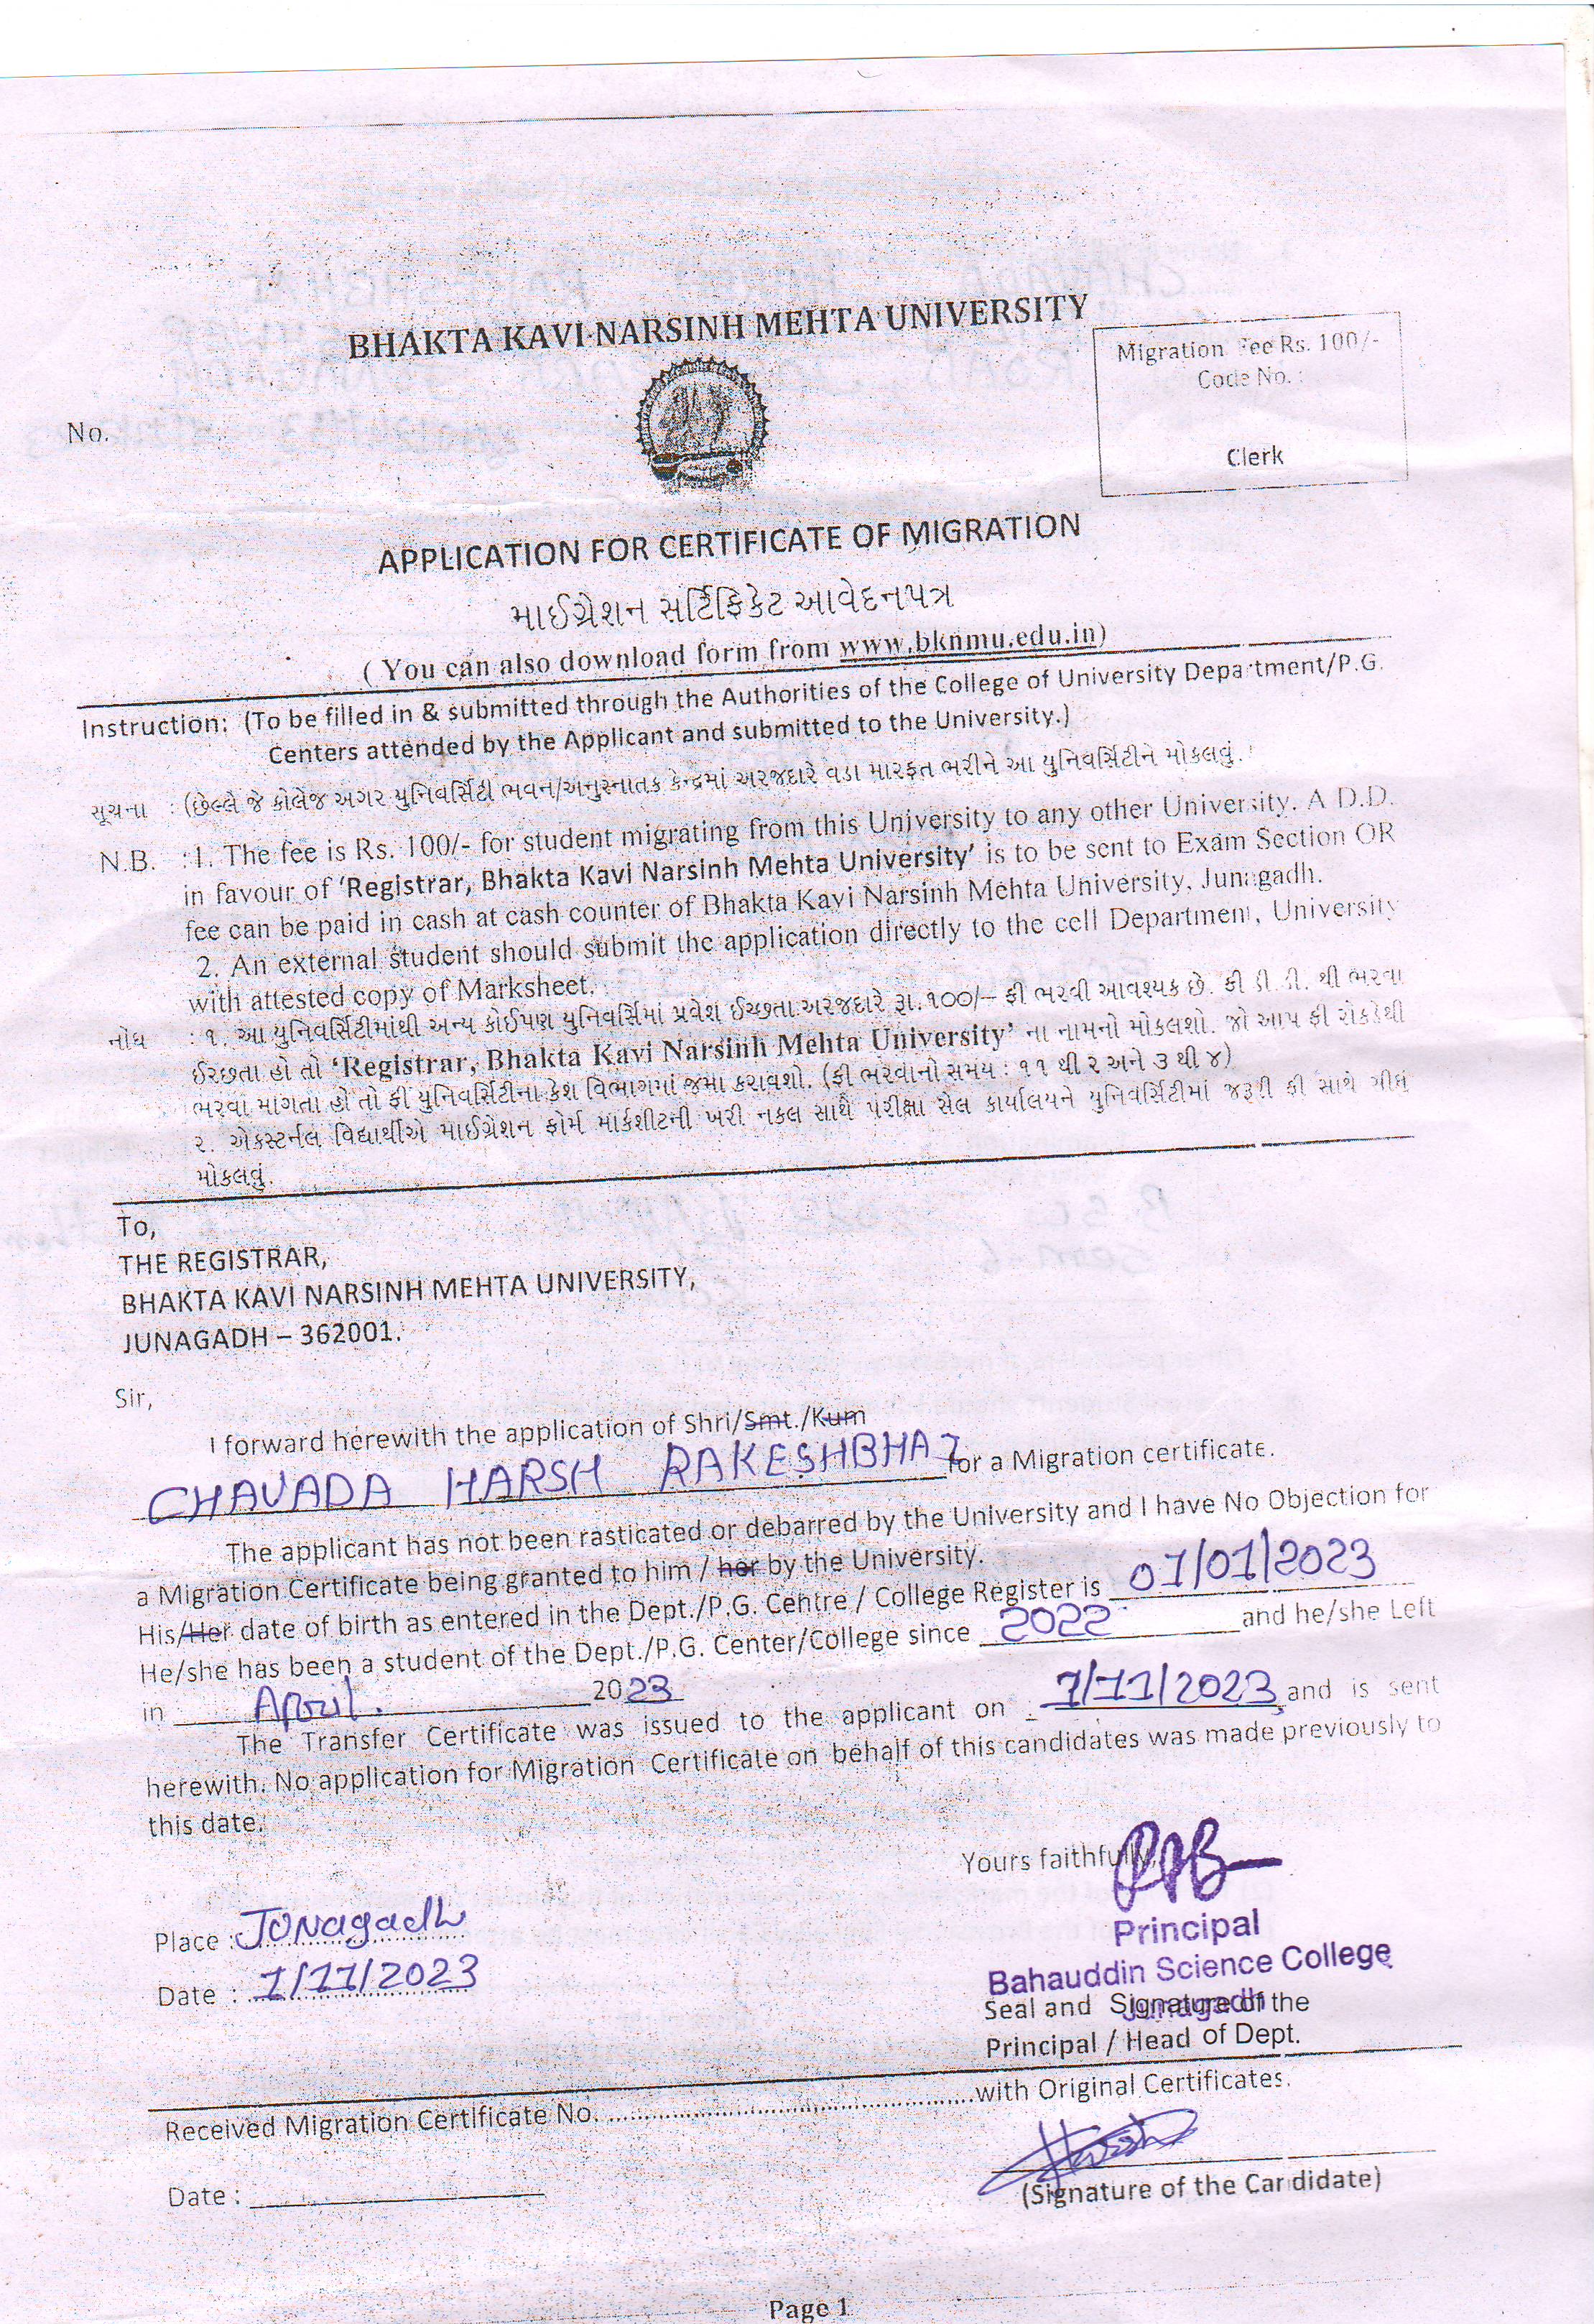 BHAKTA KAVI NARSINH MEHTA UNIVERSITY
Migration Fee Rs. 100/-
Code No. :
Clerk
No.
APPLICATION FOR CERTIFICATE OF MIGRATION
માઈગ્રેશન સર્ટિફિકેટ આવેદનપત્ર
( You can also download form from www.bknmu.edu.in)
Instruction: (To be filled in & submitted through the Authorities of the College of University Department/P.G.
Centers attended by the Applicant and submitted to the University.)
સૂચના : (છેલ્લે જે કોલેજ અગર યુનિવર્સિટી ભવન/અનુસ્નાતક કેન્દ્રમાં અરજદારે વડા મારફત ભરીને આ યુનિવર્સિટીને મોકલવું.
N.B. :1. The fee is Rs. 100/- for student migrating from this University to any other University. A D.D.
in favour of ‘Registrar, Bhakta Kavi Narsinh Mehta University’ is to be sent to Exam Section OR
fee can be paid in cash at cash counter of Bhakta Kavi Narsinh Mehta University, Junagadh.
2. An external student should submit the application directly to the cell Department, University
with attested copy of Marksheet.
નોંધ : ૧. આ યુનિવર્સિટીમાંથી અન્ય કોઈપણ યુનિવર્સિમાં પ્રવેશ ઈચ્છતા અરજદારે રૂા.૧૦૦/– ફી ભરવી આવશ્યક છે. ફી ડી.ડી. થી ભરવા
ઈચ્છતા હો તો ‘Registrar, Bhakta Kavi Narsinh Mehta University’ ના નામનો મોકલશો. જો આપ ફી રોકડેથી
ભરવા માંગતા હો તો ફી યુનિવર્સિટીના કેશ વિભાગમાં જમા કરાવશો. (ફી ભરવાનો સમય : ૧૧ થી ૨ અને ૩ થી ૪)
૨. એકસ્ટર્નલ વિદ્યાર્થીએ માઈગ્રેશન ફોર્મ માર્કશીટની ખરી નકલ સાથે પરીક્ષા સેલ કાર્યાલયને યુનિવર્સિટીમાં જરૂરી ફી સાથે સીધું
મોકલવું.
To,
THE REGISTRAR,
BHAKTA KAVI NARSINH MEHTA UNIVERSITY,
JUNAGADH – 362001.
Sir,
I forward herewith the application of Shri/Smt./Kum
CHAVADA HARSH RAKESHBHAI for a Migration certificate.
The applicant has not been rasticated or debarred by the University and I have No Objection for
a Migration Certificate being granted to him / her by the University.
His/Her date of birth as entered in the Dept./P.G. Centre / College Register is 01/01/2023
He/she has been a student of the Dept./P.G. Center/College since 2022 and he/she Left
in April. 2023
The Transfer Certificate was issued to the applicant on 1/11/2023 and is sent
herewith. No application for Migration Certificate on behalf of this candidates was made previously to
this date.
Yours faithfully,
Place : Junagadh
Date : 1/11/2023
Principal
Bahauddin Science College
Junagadh
Seal and Signature of the
Principal / Head of Dept.
Received Migration Certificate No. ........................................with Original Certificates.
Date :
(Signature of the Candidate)
Page 1